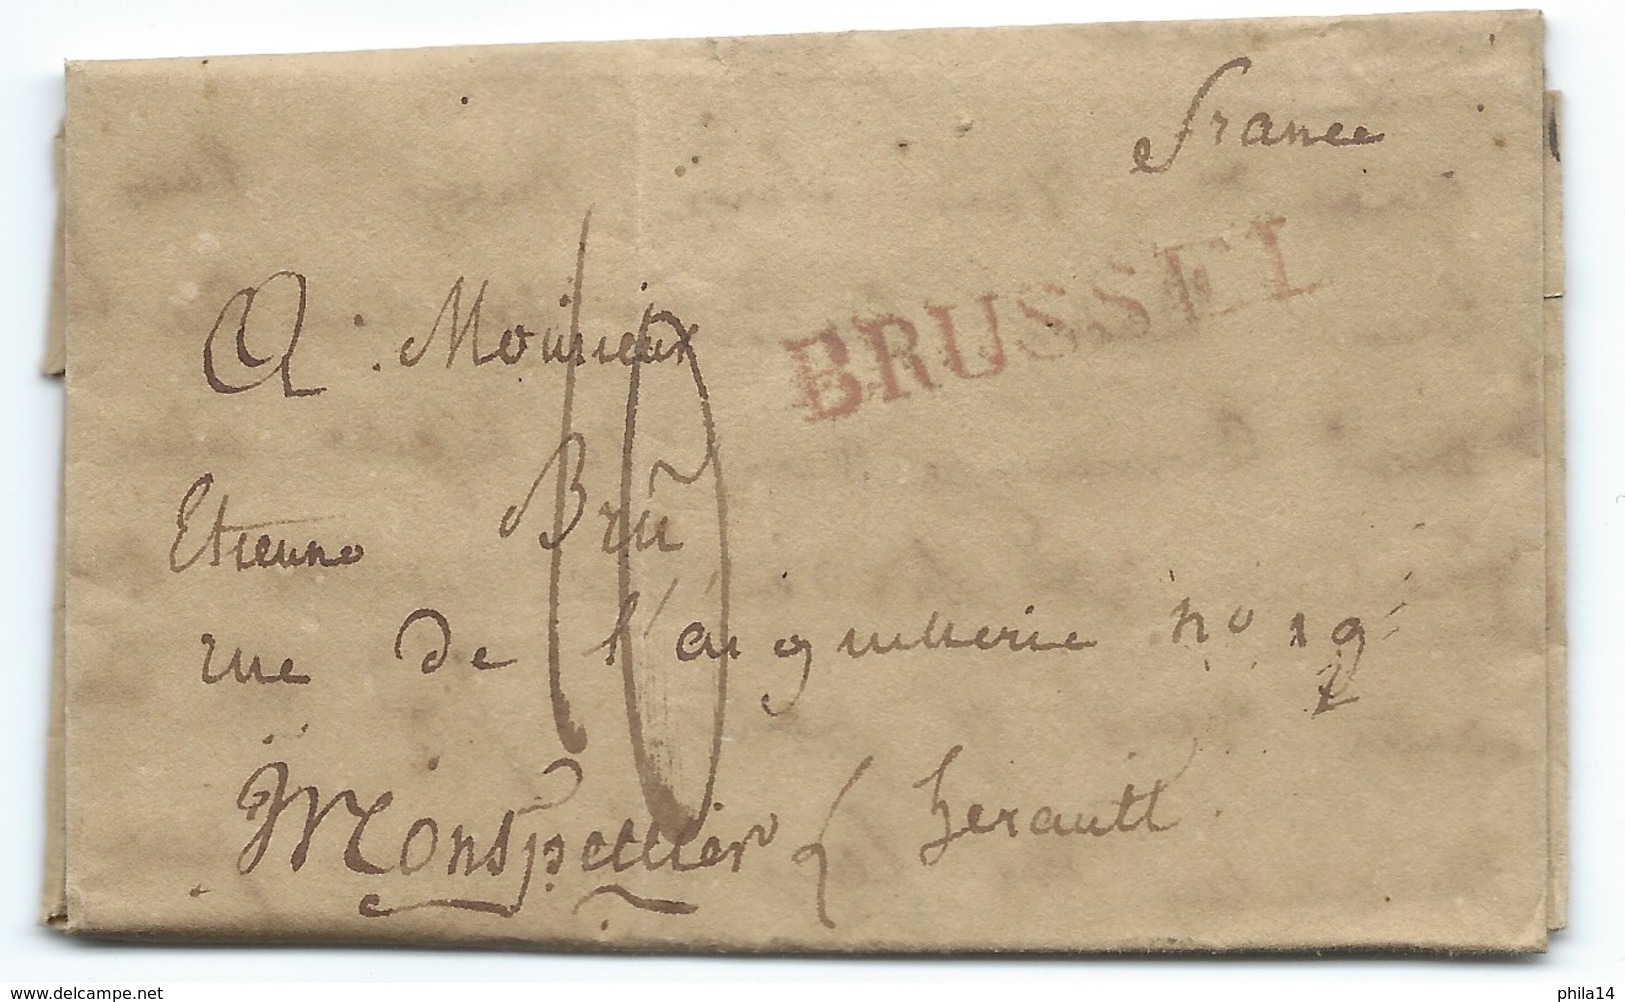 france
BRUSSEL
A : Monsieur
10
Etienne Brũ
rue de l'aiguillerie no 19
Monspellier ( herault
www.delcampe.net
phila14